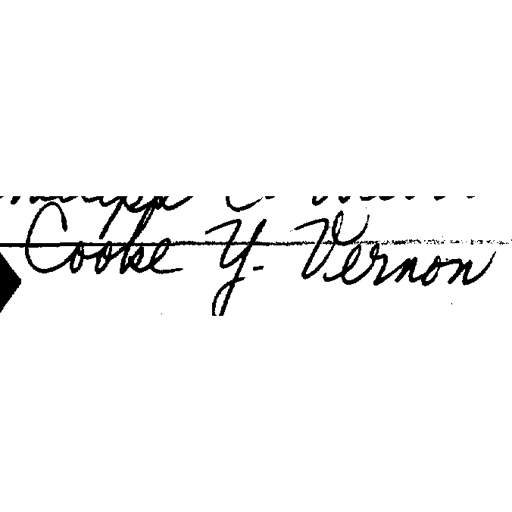 Cooke Y. Vernon